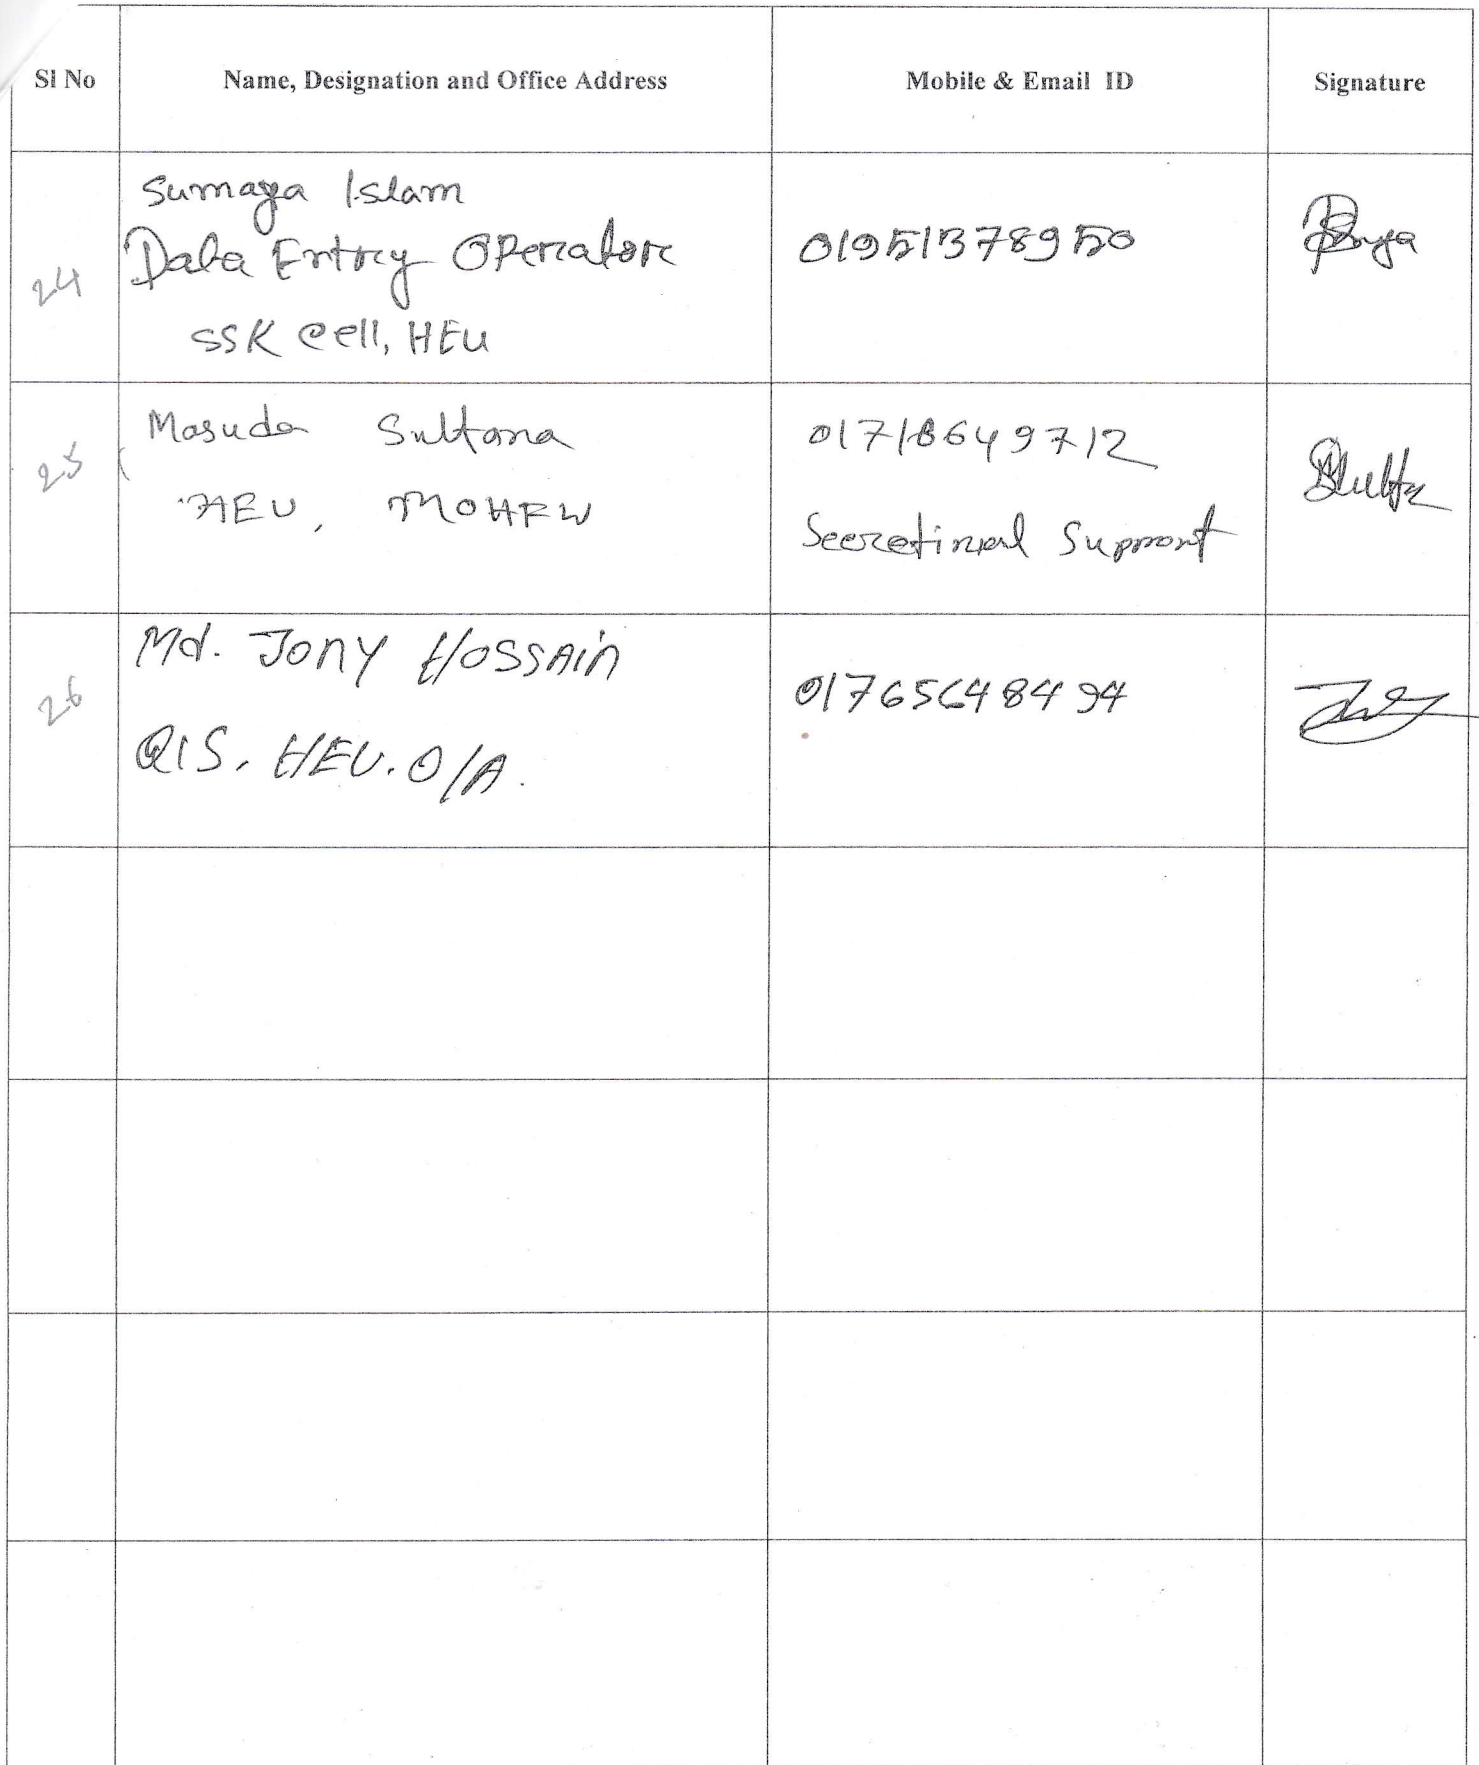 Sl No Name, Designation and Office Address Mobile & Email ID Signature
24
Sumaya Islam
Data Entry Operator
SSK cell, HEU
01951378950
25
Masuda Sultana
HEU, MOHFW
Support
26
Md. Jony Hossain
QIS. HEU. O/A.
01765648494